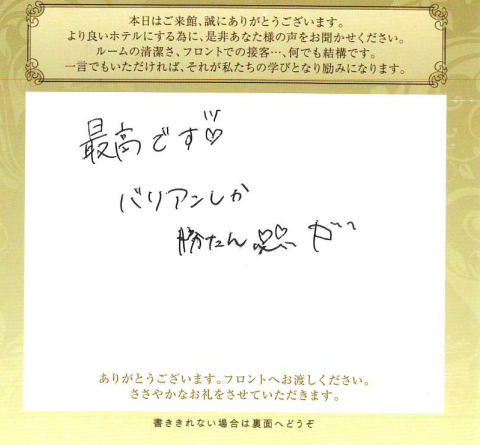 本日はご来館、誠にありがとうございます。
より良いホテルにする為に、是非あなた様の声をお聞かせください。
ルームの清潔さ、フロントでの接客…、何でも結構です。
一言でもいただければ、それが私たちの学びとなり励みになります。
最高です♡
バリアンしか
勝たん
ありがとうございます。フロントへお渡しください。
ささやかなお礼をさせていただきます。
書ききれない場合は裏面へどうぞ